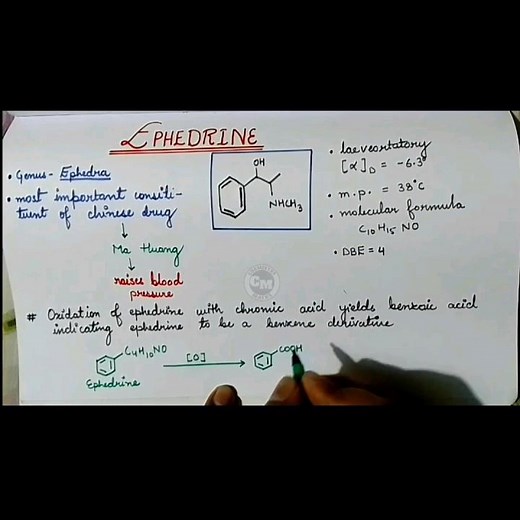 EPHEDRINE
• Genus- Ephedra
• most important consti-
tuent of chinese drug
↓
Ma Huang
↓
raises blood
pressure
OH
NHCH3
• laevorotatory
[α]D = -6.3°
• m.p. = 38°C
• molecular formula
C10H15NO
• DBE = 4
CM
# Oxidation of ephedrine with chromic acid yields benzoic acid
indicating ephedrine to be a benzene derivative
C4H10NO
[O]
COOH
Ephedrine